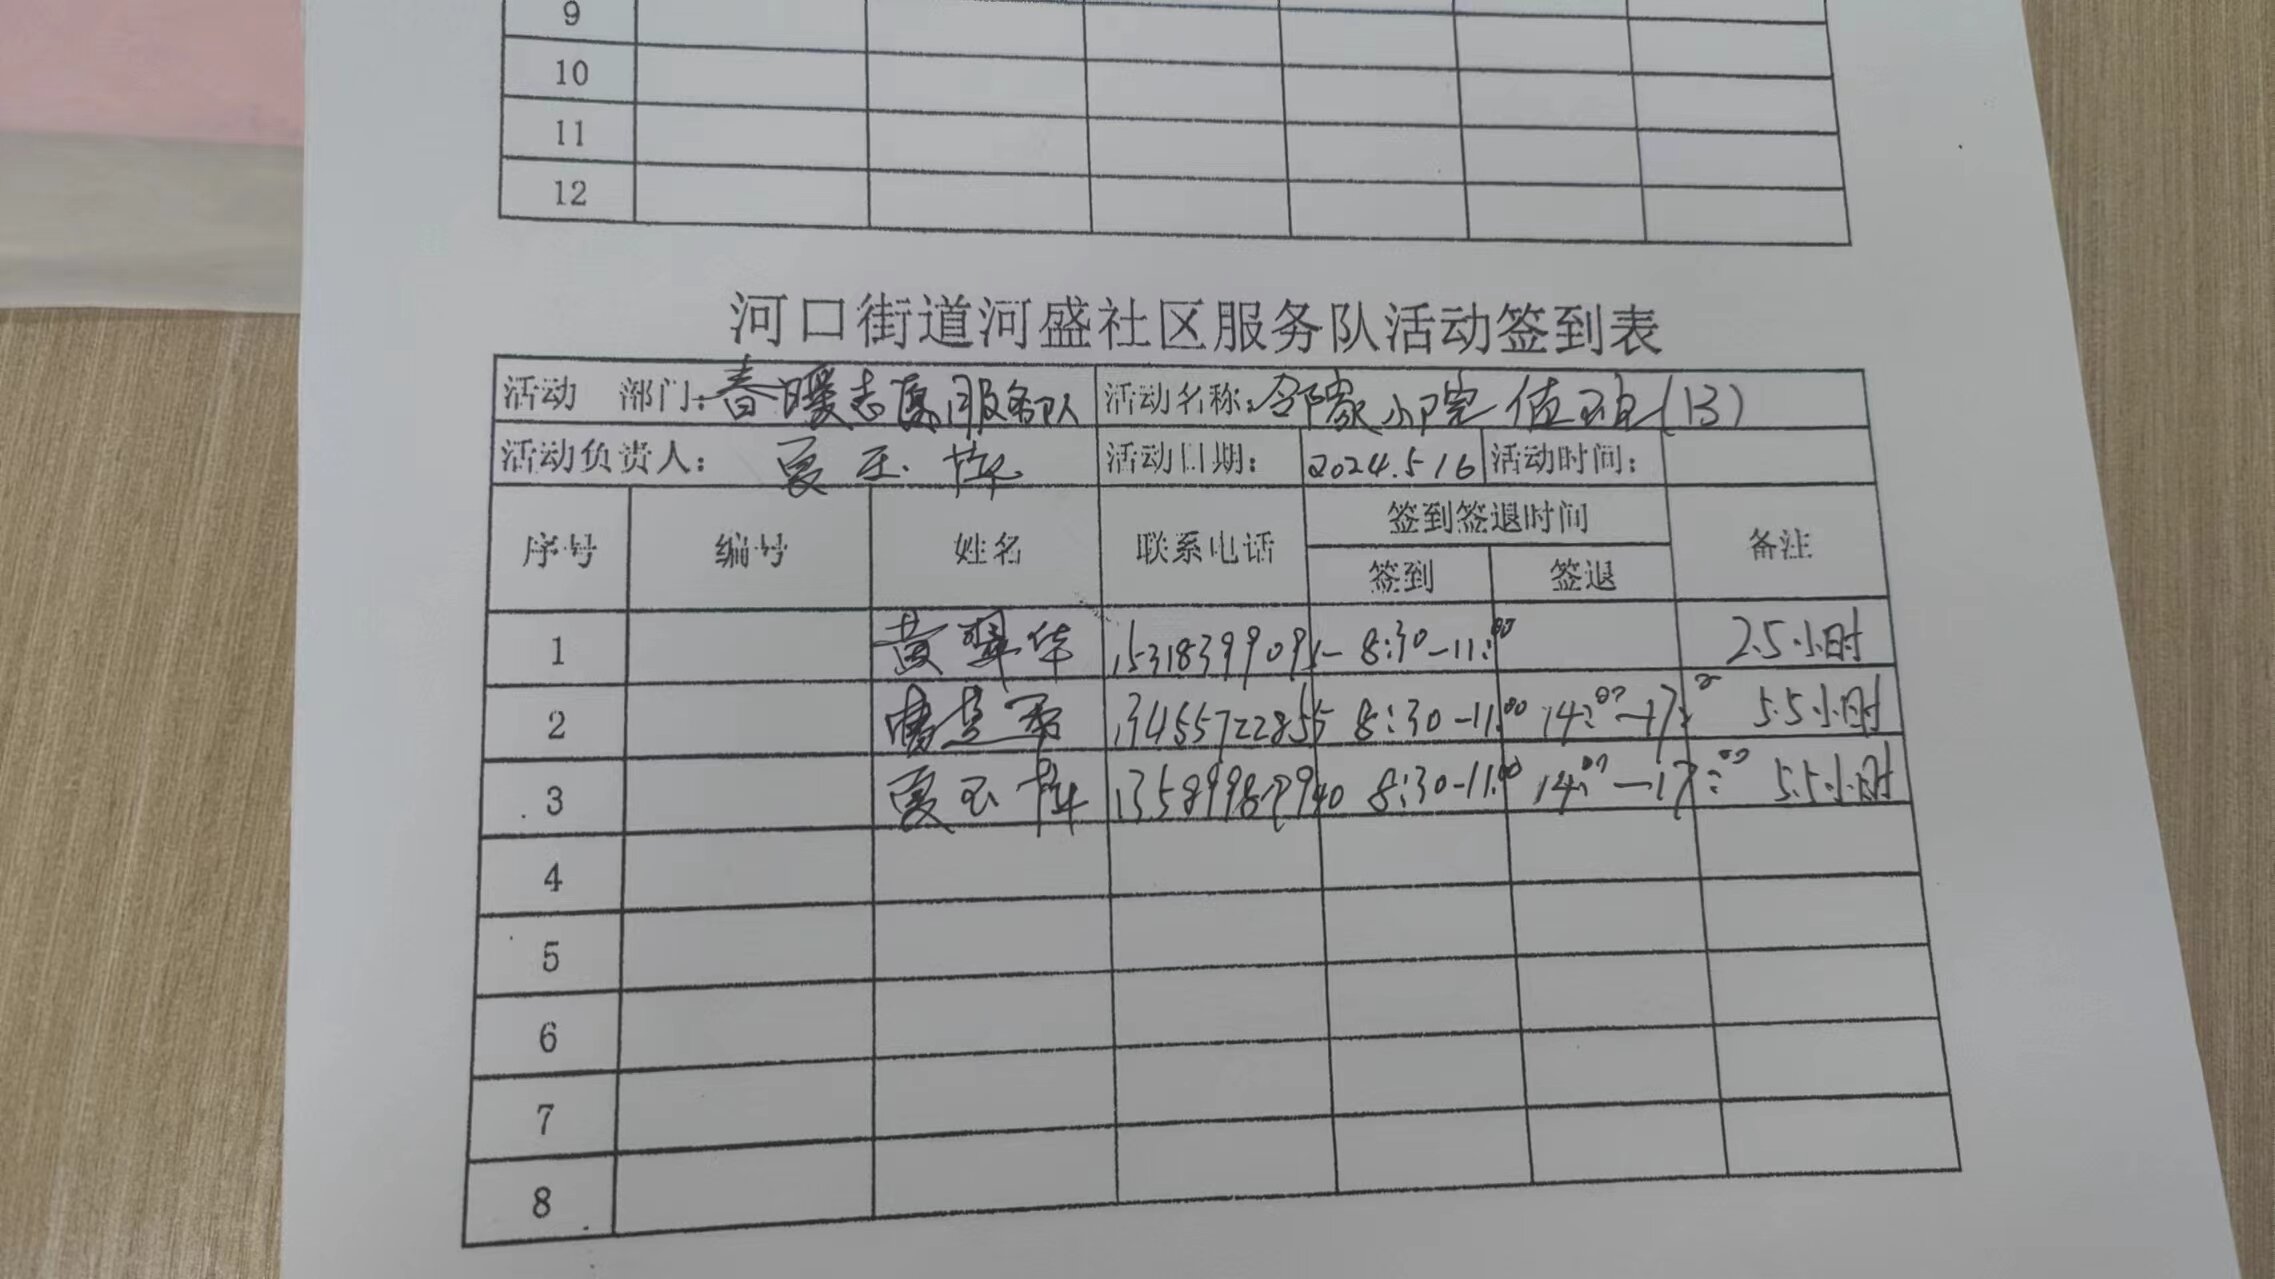 9
10
11
12
河口街道河盛社区服务队活动签到表
活动 部门：春暖志愿服务队 活动名称：邻家小院值班(13)
活动负责人：夏玉萍 活动日期：2024.5.16 活动时间：
序号 编号 姓名 联系电话 签到签退时间 备注
签到 签退
1 黄翠华 15318399091 8:30-11:00 2.5小时
2 13455722855 8:30-11:00 14:00-17: 5.5小时
3 夏玉萍 8:30-11:00 14:00-17:00 5.5小时
4
5
6
7
8